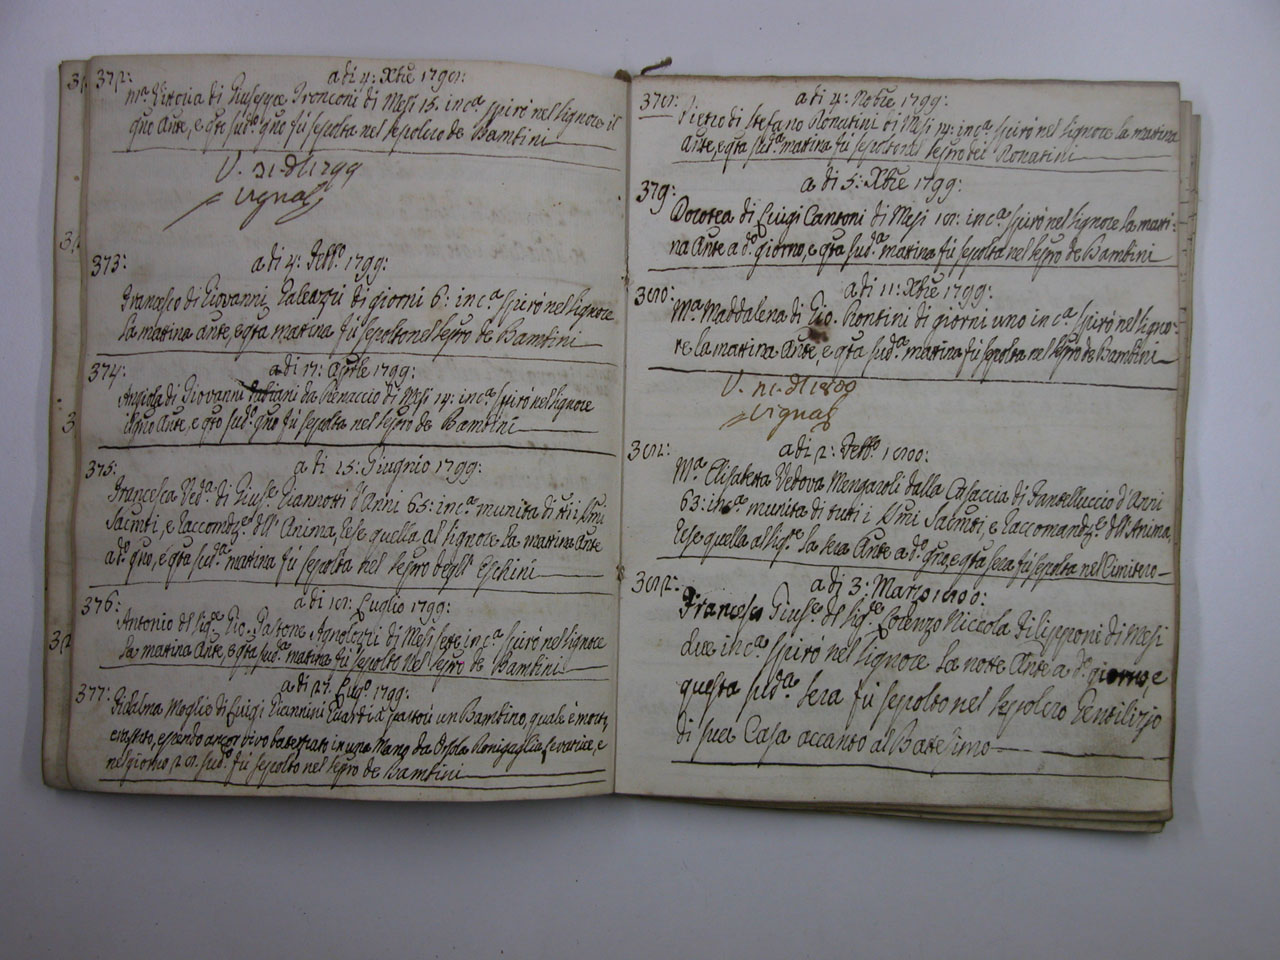 372:
a di 4: Xbre 1798:
Mª Vittoria di Giuseppe Tronconi di Mesi 15. incª spirò nel Signore il
gno Ante, e qto sudº gno fù sepolta nel sepolcro de Bambini
V. 1799
Vignas
373:
a di 4: Febbº 1799:
Francesco di Giovanni Galeazzi di giorni 6: incª spirò nel Signore
la matina ante, e qta matina fù sepolto nel seprº de Bambini
374:
a di 17: Aprile 1799:
Angiola di Giovanni Fabiani da Renaccio di Mesi 14: incª spirò nel Signore
il gno Ante, e qto sudº gno fù sepolta nel seprº de Bambini
375:
a di 25: Giugnio 1799:
Francesca Vedª di Giuse Giannotti d'Anni 65: incª munita di tti i SSmi
Sacmti, e Raccomdze dell'Anima, rese quella al Signore la mattina Ante
a dº gno, e qta sudª matina fù sepolta nel seprº degli Eschini
376:
a di 18: Luglio 1799:
Antonio del Sigre Gio. Gastone Agnolozzi di Mesi sette incª spirò nel Signore
la matina Ante, e qta sudª matina fù sepolto nel seprº de Bambini
377:
a di 27. Lugº 1799:
Fidalma Moglie di Luigi Giannini Guardia partorì un Bambino, quale è morto,
e nato, essendo ancor vivo batezzato in una Mano da Orsola Ronisaglia Levatrice, e
nel giorno 28. sudº fù sepolto nel seprº de Bambini
378:
a di 4: Nobre 1799:
Pietro di Stefano Ronatini di Mesi 14: incª spirò nel Signore la matina
Ante, e qta sudª matina fù sepolto nel seprº dei Ronatini
379:
a di 5: Xbre 1799:
Dorotea di Luigi Cantoni di Mesi 18: incª spirò nel Signore la mati-
na Ante a dº giorno, e qta sudª matina fù sepolta nel seprº de Bambini
380:
a di 11: Xbre 1799:
Mª Maddalena di Gio. Rontini di giorni uno incª spirò nel Signo-
re la mattina Ante, e qta sudª matina fù sepolta nel seprº de Bambini
V. 1800
Vignas
381:
a di 2: Febbº 1800:
Mª Elisabetta Vedova Mengaroli dalla Casaccia di Santelluccio d'Anni
63: incª munita di tutti i SSmi Sacmti, e Raccomandze dell'Anima,
rese quella al Sigre la sera Ante a dº gno, e qta sera fù sepolta nel Cimitero
382:
a di 3: Marzo 1800:
Francesco Giuse del Sigre Lorenzo Niccola Filipponi di Mesi
due incª spirò nel Signore la notte Ante a dº giorno, e
questa sudª sera fù sepolto nel sepolcro Gentilizio
di sua Casa accanto al Batesimo